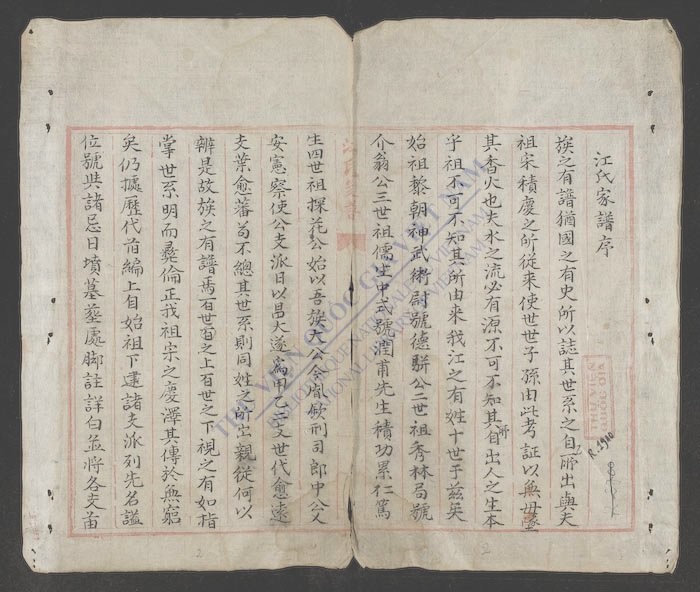 江氏家譜序
族之有譜猶國之有史所以誌其世系之自所出與夫
祖宗積慶之所從来使世世子孫由此考証以無毋墜
其香火也夫水之流必有源不可不知其所自出人之生本
乎祖不可不知其所由来我江之有姓十世于茲矣
始祖黎朝神武衛尉號德駢公二世祖秀林局號
介翁公三世祖儒生中式號潤甫先生積功累仁篤
生四世祖探花公始以吾族大公令嗣歆刑司郎中公乂
安憲察使公支派日以昌大遂為甲乙二支世代愈遠
支葉愈蕃苟不總其世系則同姓之所出親從何以
辨是故族之有譜焉百世百之上百世之下視之有如指
掌世系明而彞倫正我祖宗之慶澤其傳於無窮
矣仍據歷代前編上自始祖下逮諸支派列先名謚
位號與諸忌日墳墓塟處脚註詳白並将各支苗
THƯ VIỆN QUỐC GIA VIỆT NAM
BIBLIOTHEQUE NATIONALE DU VIETNAM
NATIONAL LIBRARY OF VIETNAM
THƯ VIỆN
QUỐC GIA
R.1910
2
2